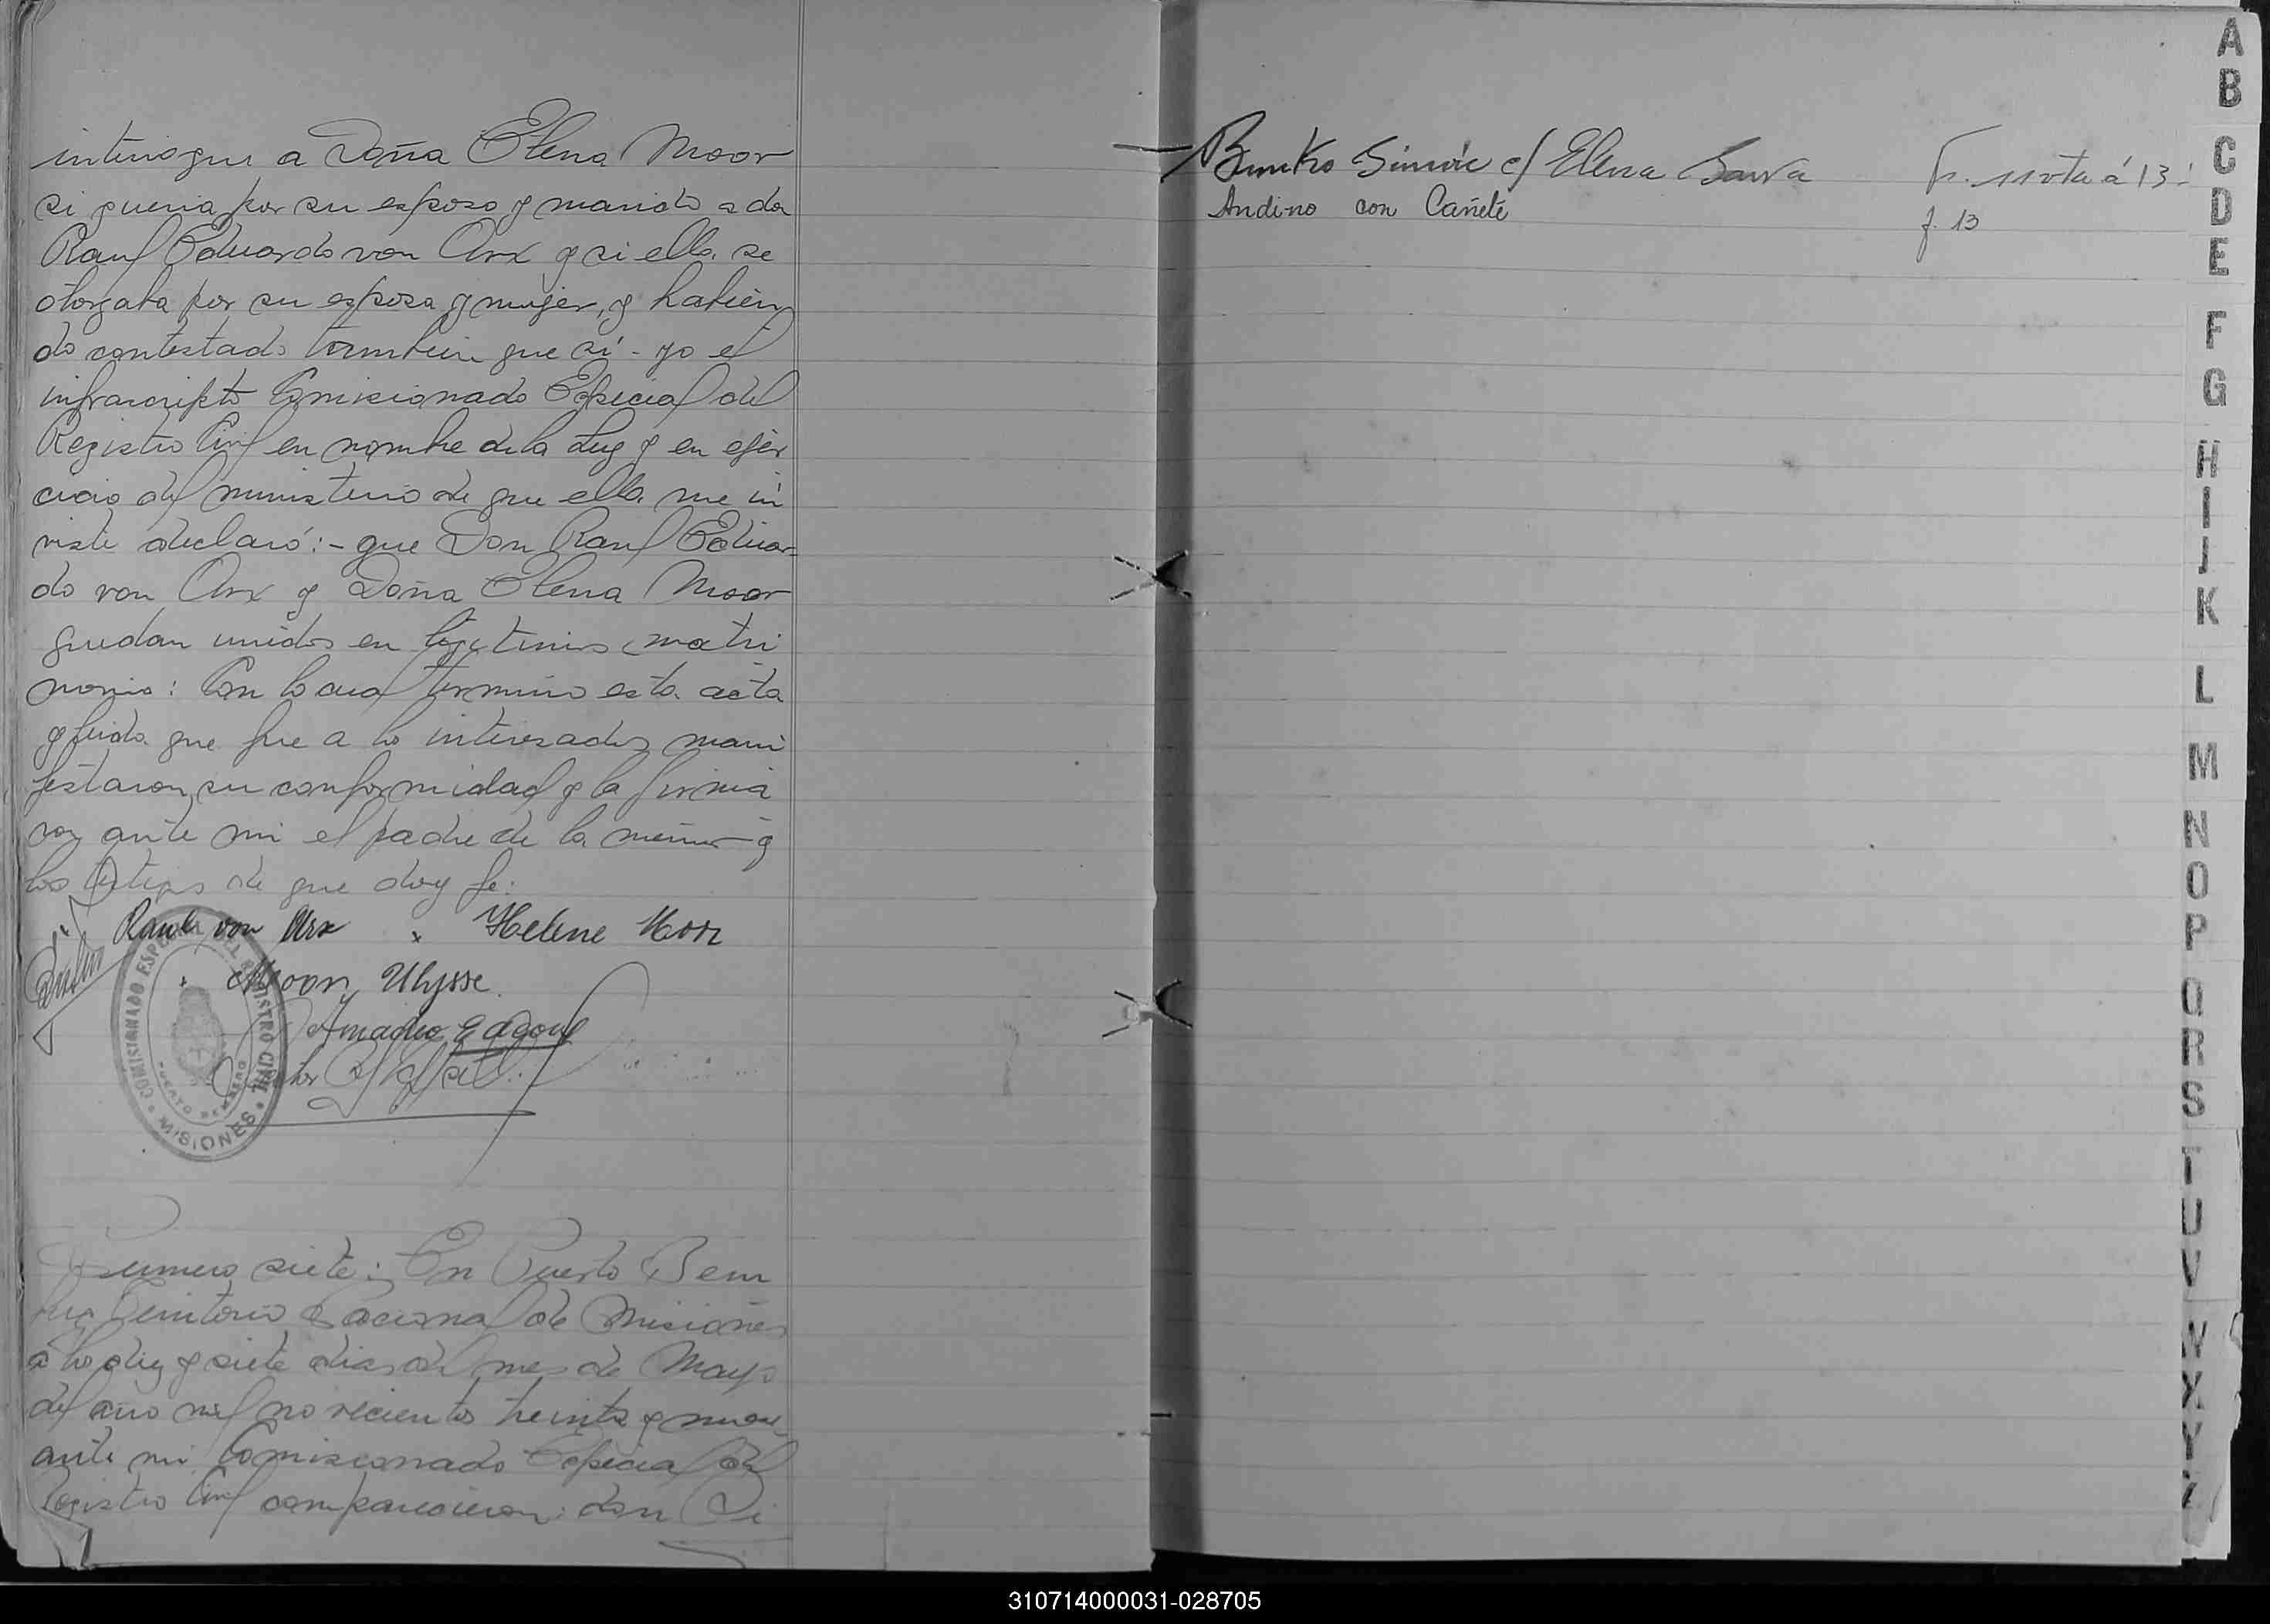 interrogué a Doña Elena Moor
si queria por su esposo y marido a don
Raul Eduardo von Arx y si ella se
otorgaba por su esposa y mujer, y habien
do contestado tambien que sí - yo el
infrascripto Comisionado Especial del
Registro Civil en nombre de la Ley y en ejer
cicio del ministerio de que ella me in
viste declaró: - que Don Raul Eduar-
do von Arx y Doña Elena Moor
quedan unidos en legitimo matri
monio: Con lo cual termino esta acta
y leida que fue a lo interesados mani
festaron su conformidad y la firma
ron ante mi el padre de la menor y
los testigos de que doy fe:
Raul von Arx x Helene Moor
x Moor, Ulysse.
Amadeo
COMISIONADO ESPECIAL DEL REGISTRO CIVIL
PUERTO BEMBERG
MISIONES
Numero siete: En Puerto Bem
berg Territorio Nacional de Misiones
a lo diez y siete dias del mes de Mayo
del año mil novecientos treinta y nueve
ante mi Comisionado Especial del
Registro Civil comparecieron: don Si
Bunko Simón c/ Elena
Andino con Cañete
f. 13
A
B
C
D
E
F
G
H
I
J
K
L
M
N
O
P
Q
R
S
T
U
V
W
X
Y
Z
310714000031-028705